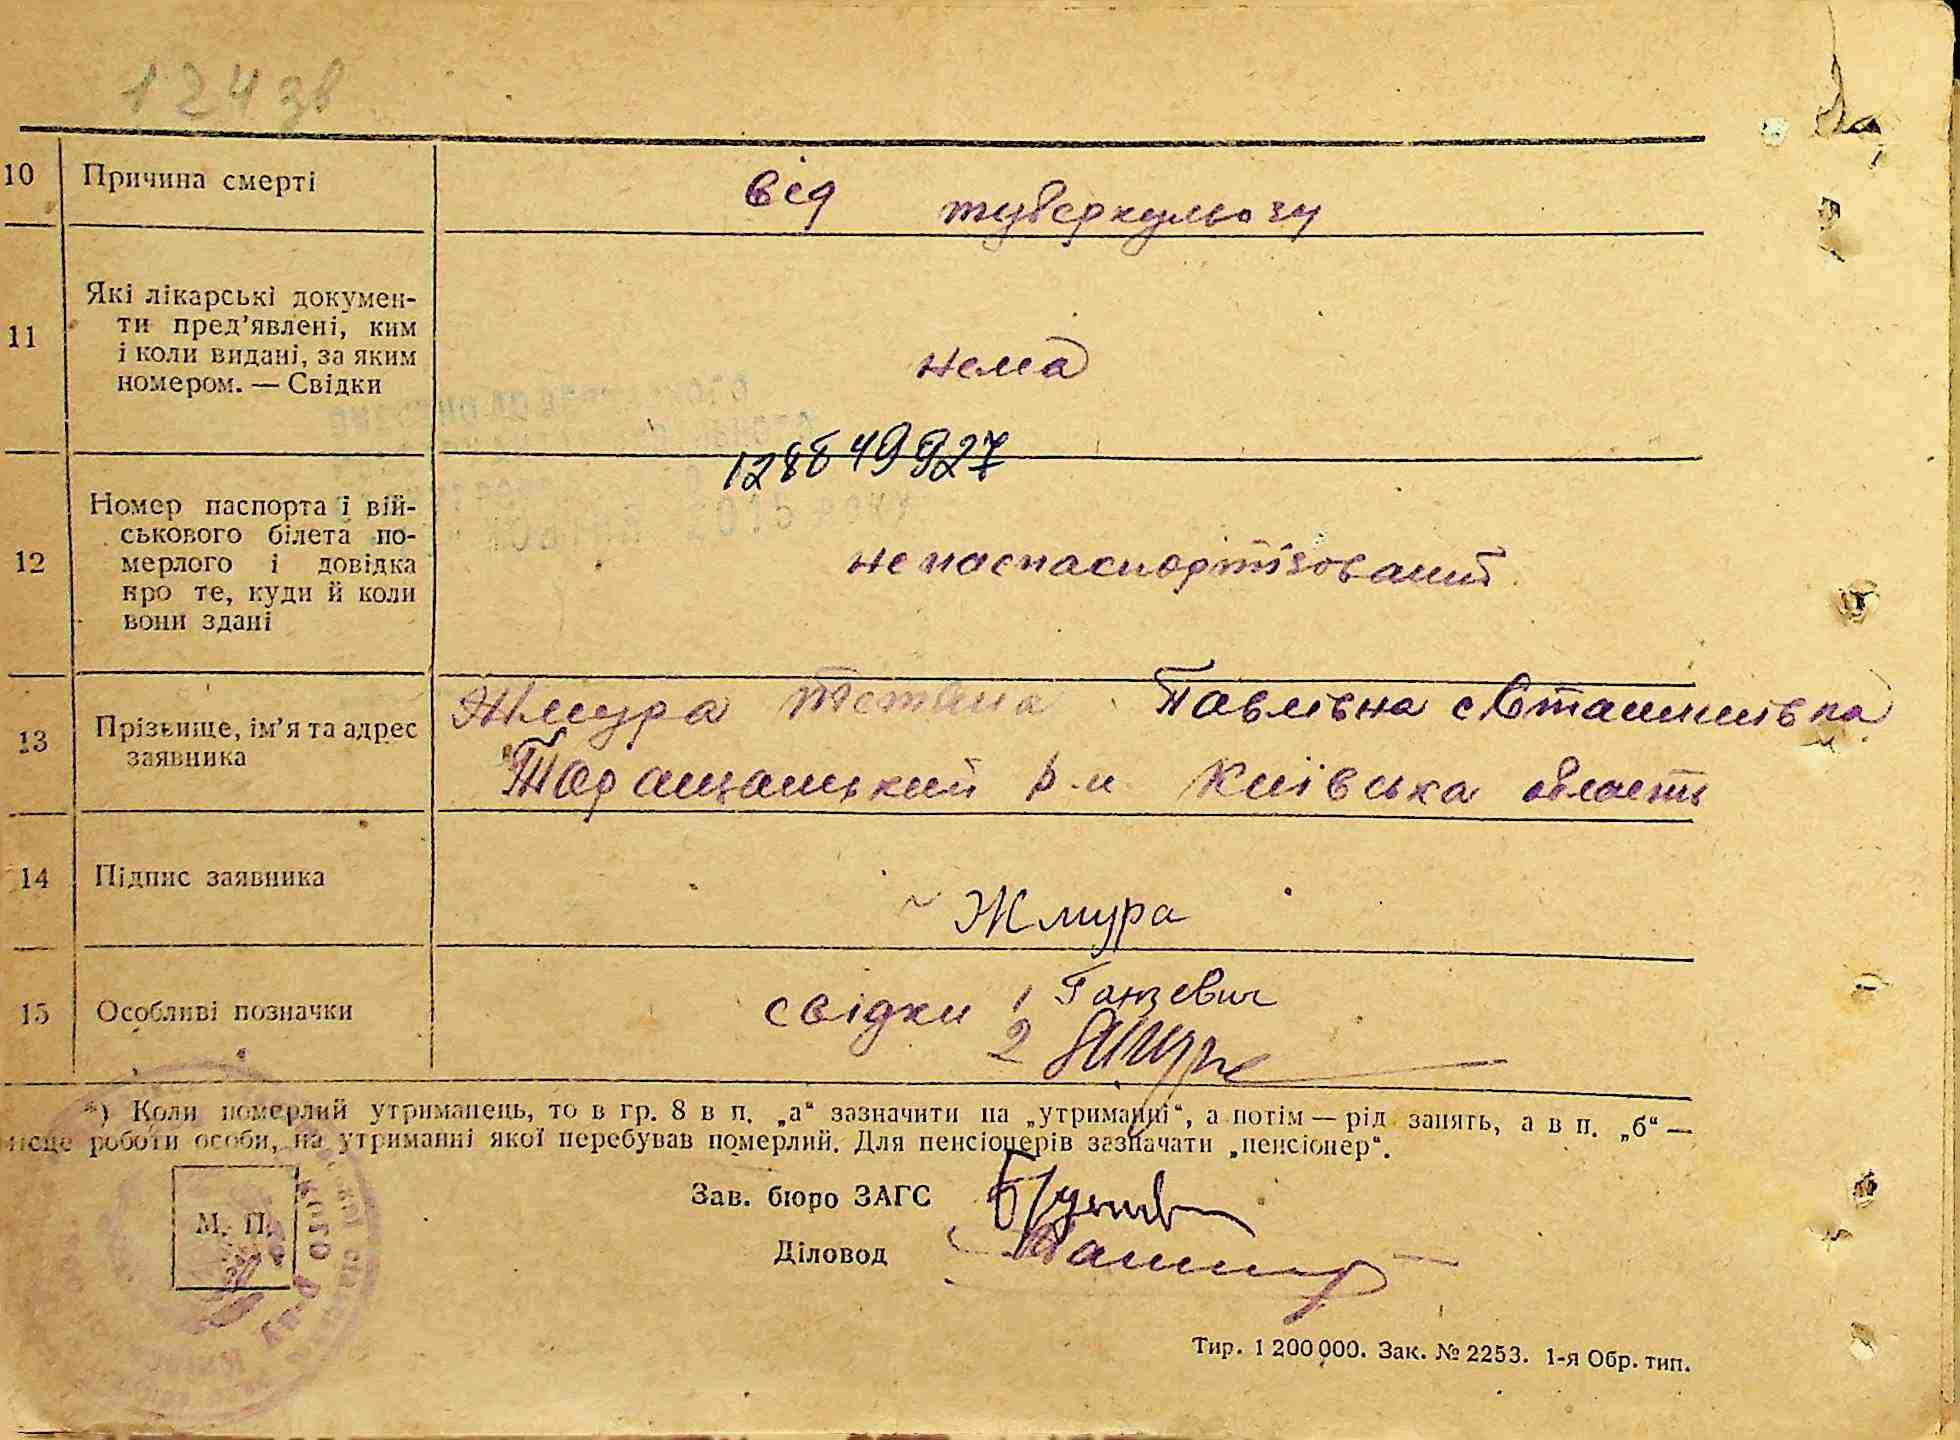 124 зв
10 Причина смерті від туберкульозу
11 Які лікарські докумен-
ти пред'явлені, ким
і коли видані, за яким
номером. — Свідки
нема
128849927
12 Номер паспорта і вій-
ськового білета по-
мерлого і довідка
про те, куди й коли
вони здані
непаспаспортізований
13 Прізвище, ім'я та адрес
заявника
Жмура Тетяна Павлівна с Сташиівка
Таращанський р-н Київська область
14 Підпис заявника
Жмура
15 Особливі позначки
свідки 1 Ганзевич
2
*) Коли померлий утриманець, то в гр. 8 в п. „а“ зазначити на „утриманні“, а потім — рід занять, а в п. „б“ —
місце роботи особи, на утриманні якої перебував померлий. Для пенсіонерів зазначати „пенсіонер“.
М. П.
Зав. бюро ЗАГС
Діловод
Тир. 1 200 000. Зак. № 2253. 1-я Обр. тип.